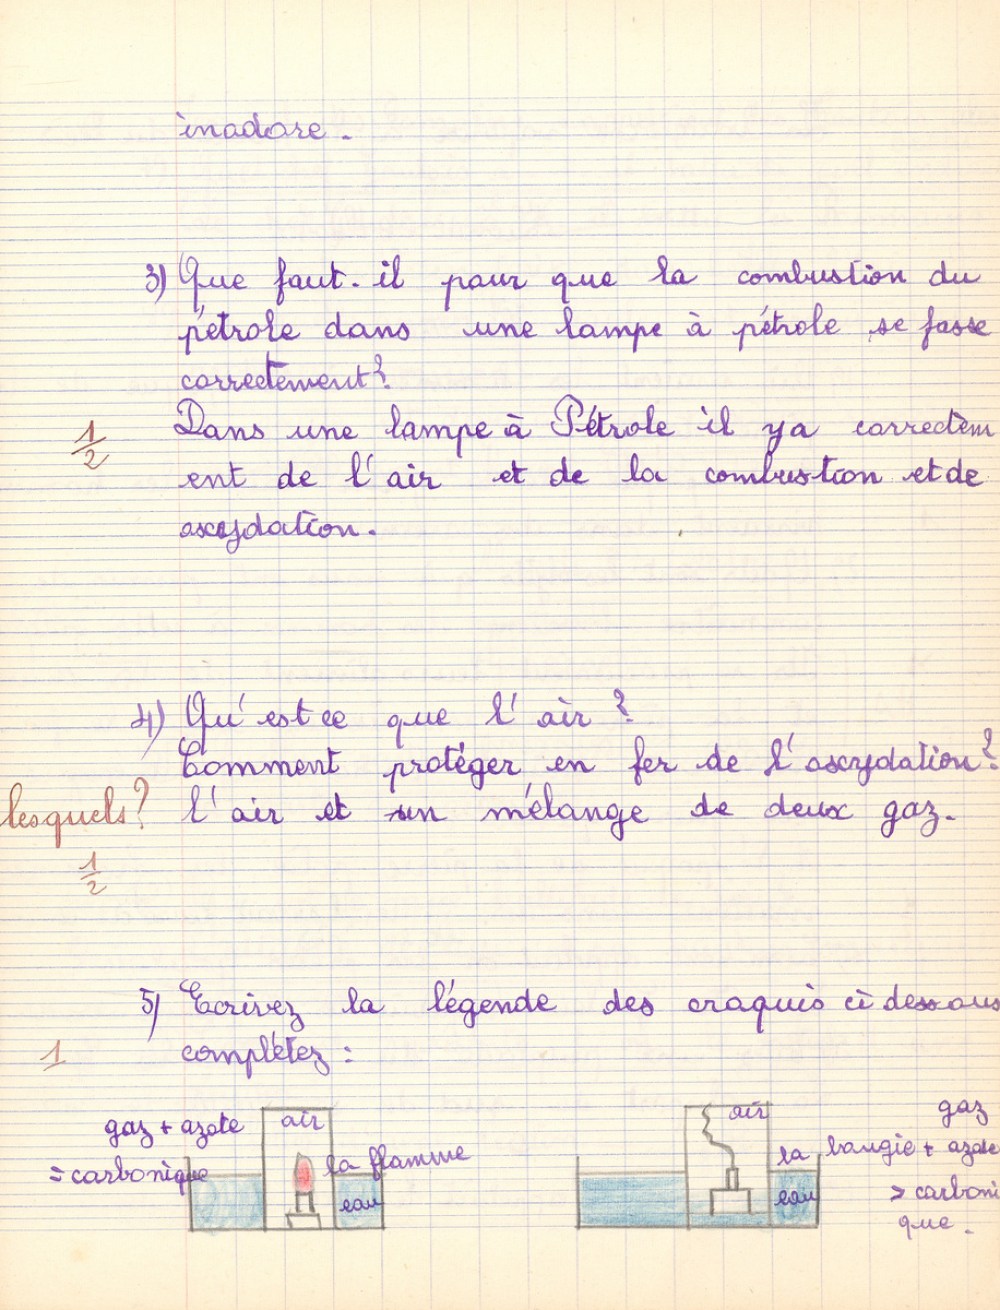 inadore.
3) Que faut-il pour que la combustion du
pétrole dans une lampe à pétrole se fasse
correctement?
1/2
Dans une lampe à Pétrole il y a correctem
ent de l'air et de la combustion et de
oxydation.
4) Qu'est ce que l'air?
Comment protéger en fer de l'oxydation?
lesquels? l'air et un mélange de deux gaz.
1/2
5) Ecrivez la légende des croquis ci dessous
1 complétez :
gaz + azote
= carbonique
air
la flamme
eau
air
la bougie
eau
gaz
+ azote
> carboni
que.